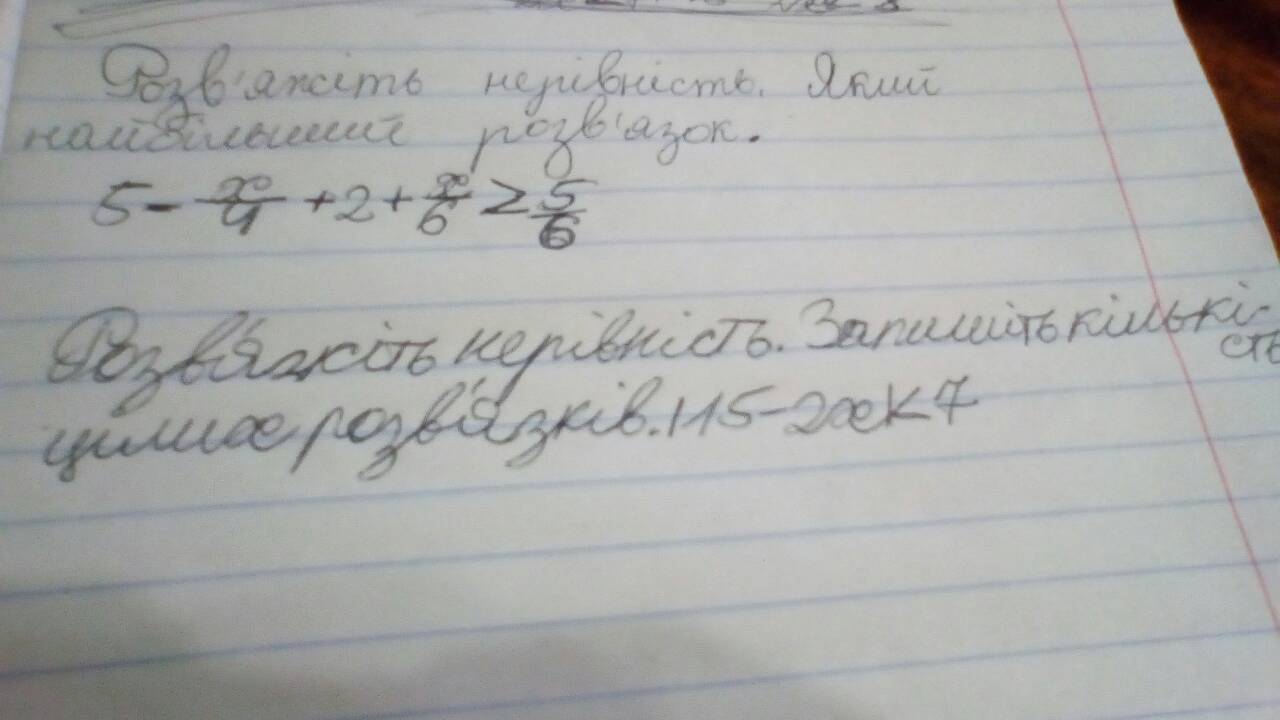 Розв'яжіть нерівність. Який
найбільший розв'язок.
5 - x/4 + 2 + x/6 ≥ 5/6
Розв'яжіть нерівність. Запишіть кількі-
сть
цілих розв'язків. |15-2x|<7